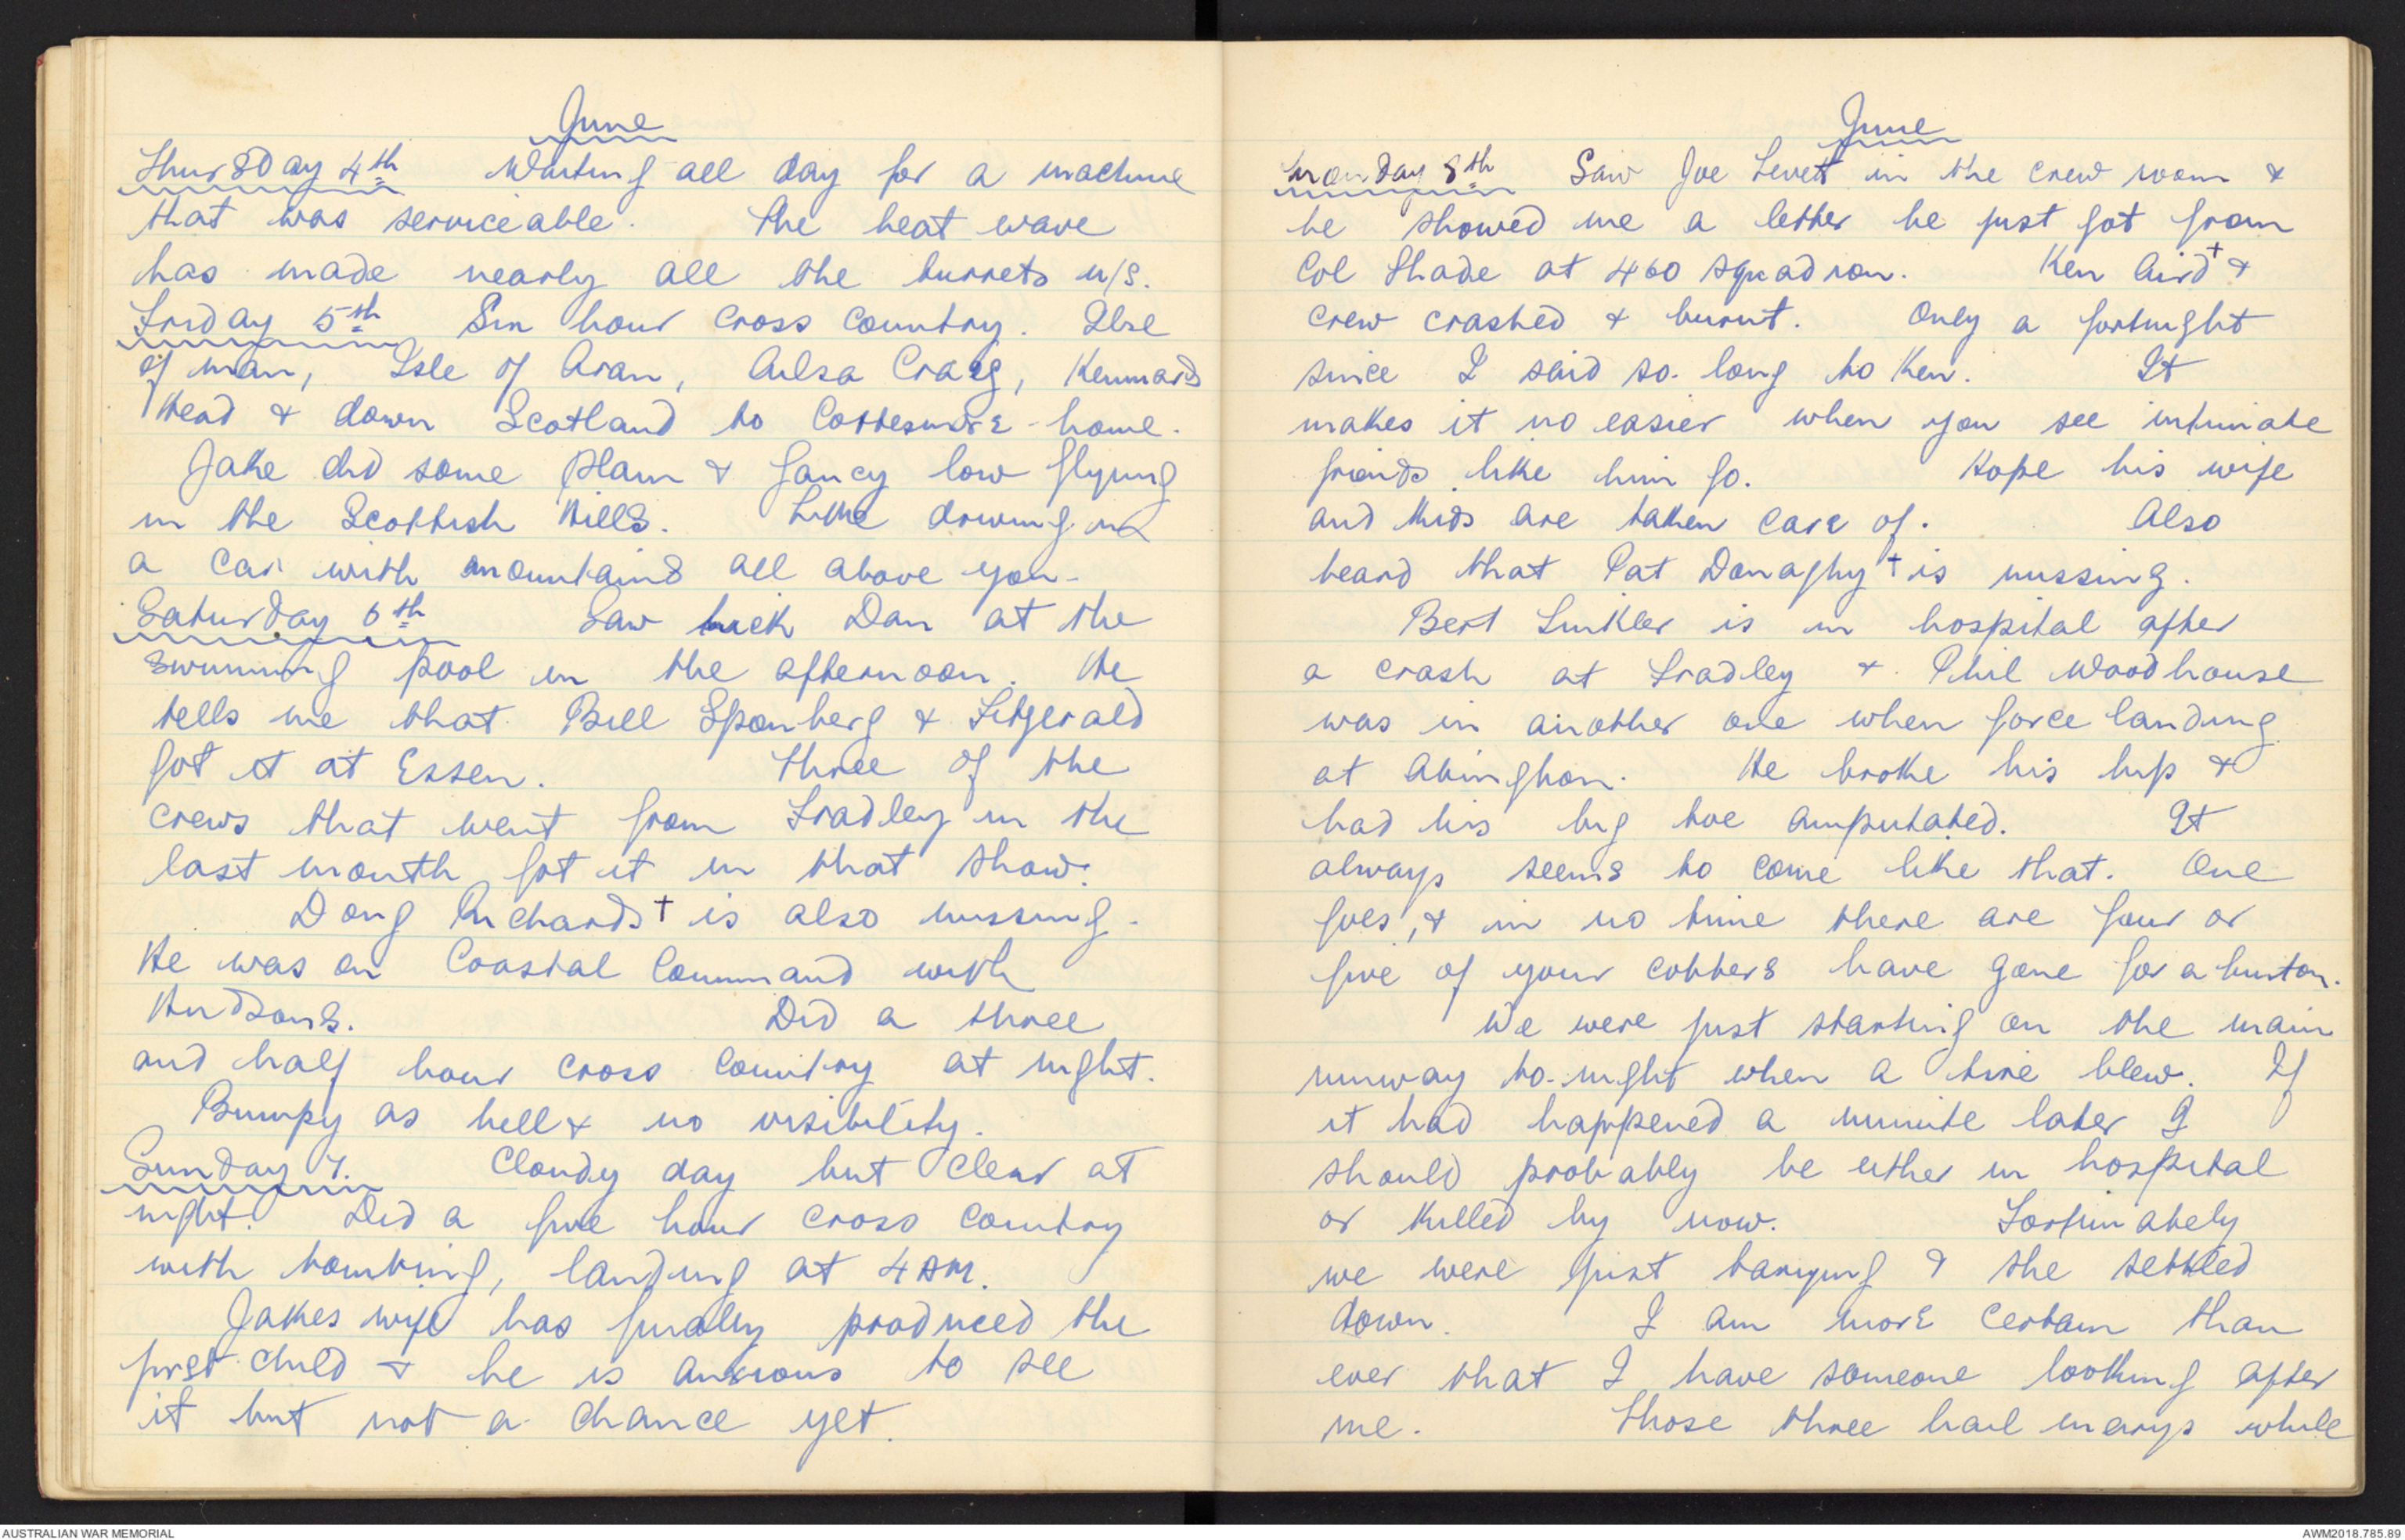 June
Thursday 4th Waiting all day for a machine
that was serviceable. The heat wave
has made nearly all the turrets u/s.
Friday 5th Six hour cross country. Isle
of man, Isle of Aran, Ailsa Craig, Kennards
Head & down Scotland to Cottesmore - home.
Jake did some plain & fancy low flying
in the Scottish Hills. Like driving in
a car with mountains all above you.
Saturday 6th Saw Dan at the
swimming pool in the afternoon. He
tells me that Bill Sponberg & Fitgerald
got it at Essen. Three of the
crews that went from Fradley in the
last month got it in that show.
Doug Richards† is also missing.
He was on Coastal Command with
Hudsons. Did a three
and half hour cross country at night.
Bumpy as hell & no visibility.
Sunday 7. Cloudy day but clear at
night. Did a five hour cross country
with bombing, landing at 4 AM.
Jakes wife has finally produced the
first child & he is anxious to see
it but not a chance yet.
June
Monday 8th Saw Joe Levett in the crew room &
he showed me a letter he just got from
Col Shade at 460 squadron. Ken Aird† &
crew crashed & burnt. Only a fortnight
since I said so-long to Ken. It
makes it no easier when you see intimate
friends like him go. Hope his wife
and kids are taken care of. Also
heard that Pat Donaghy† is missing.
Bert Linkler is in hospital after
a crash at Fradley & Phil Woodhouse
was in another one when force landing
at Abinghon. He broke his hip &
had his big toe amputated. It
always seems to come like that. One
goes, & in no time there are four or
five of your cobbers have gone for a burton.
We were just starting on the main
runway to-night when a tire blew. If
it had happened a minute later I
should probably be either in hospital
or killed by now. Fortunately
we were just taxying & she settled
down. I am more certain than
ever that I have someone looking after
me. Those three hail marys while
AUSTRALIAN WAR MEMORIAL
AWM2018.785.89